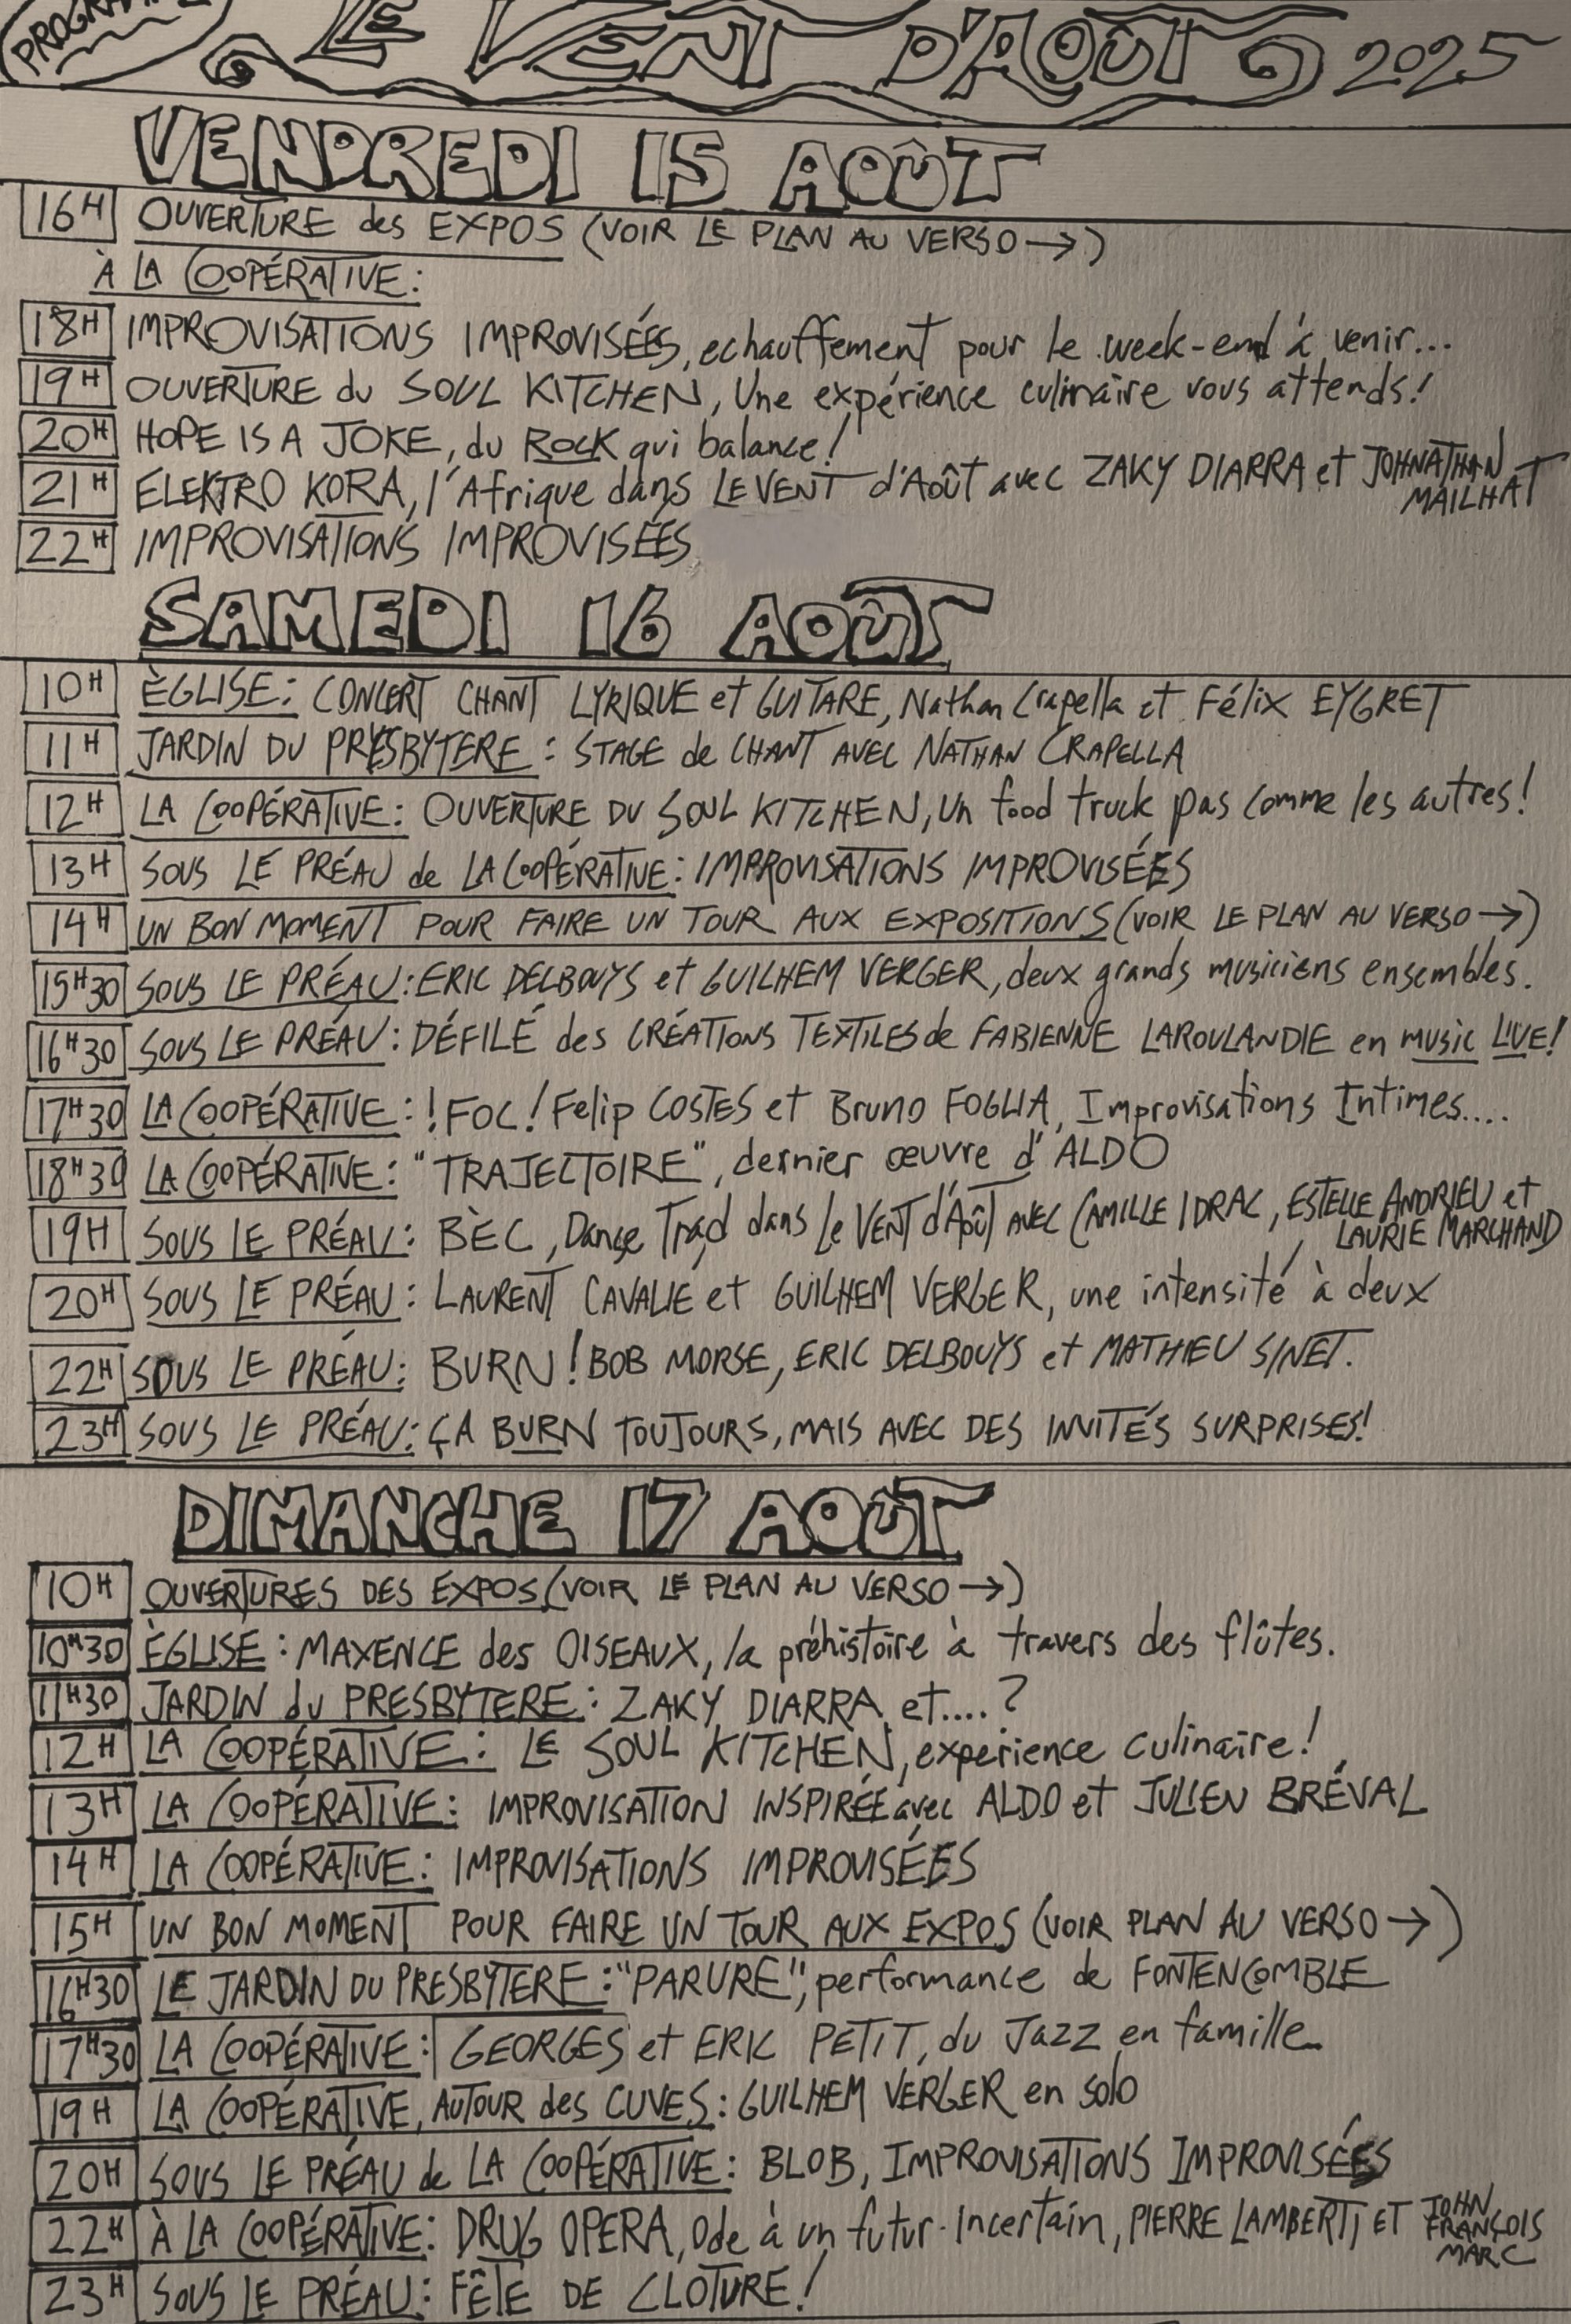 LE VENT D'AOÛT 2025
VENDREDI 15 AOÛT
16H OUVERTURE des EXPOS (VOIR LE PLAN AU VERSO →)
À LA COOPÉRATIVE :
18H IMPROVISATIONS IMPROVISÉES, echauffement pour le week-end à venir...
19H OUVERTURE du SOUL KITCHEN, Une expérience culinaire vous attends !
20H HOPE IS A JOKE, du ROCK qui balance !
21H ELEKTRO KORA, l'Afrique dans LE VENT d'Août avec ZAKY DIARRA et JOHNATHAN MAILHAT
22H IMPROVISATIONS IMPROVISÉES
SAMEDI 16 AOÛT
10H ÈGLISE : CONCERT CHANT LYRIQUE et GUITARE, Nathan Crapella et Félix EYGRET
11H JARDIN DU PRESBYTERE : STAGE de CHANT AVEC NATHAN CRAPELLA
12H LA COOPÉRATIVE : OUVERTURE DU SOUL KITCHEN, Un food truck pas comme les autres !
13H SOUS LE PRÉAU de LA COOPÉRATIVE : IMPROVISATIONS IMPROVISÉES
14H UN BON MOMENT POUR FAIRE UN TOUR AUX EXPOSITIONS (VOIR LE PLAN AU VERSO →)
15H30 SOUS LE PRÉAU : ERIC DELBOUYS et GUILHEM VERGER, deux grands musiciens ensembles.
16H30 SOUS LE PRÉAU : DÉFILÉ des CRÉATIONS TEXTILES de FABIENNE LAROULANDIE en music LIVE !
17H30 LA COOPÉRATIVE : ! FOC ! Felip COSTES et Bruno FOGLIA, Improvisations Intimes....
18H30 LA COOPÉRATIVE : "TRAJECTOIRE", dernier œuvre d'ALDO
19H SOUS LE PRÉAU : BÈC, Danse Trad dans Le VENT d'Août AVEC CAMILLE IDRAC, ESTELLE ANDRIEU et LAURIE MARCHAND
20H SOUS LE PRÉAU : LAURENT CAVALIE et GUILHEM VERGER, une intensité à deux
22H SOUS LE PRÉAU : BURN ! BOB MORSE, ERIC DELBOUYS et MATHIEU SINET.
23H SOUS LE PRÉAU : ÇA BURN TOUJOURS, MAIS AVEC DES INVITÉS SURPRISES !
DIMANCHE 17 AOÛT
10H OUVERTURES DES EXPOS (VOIR LE PLAN AU VERSO →)
10H30 ÈGLISE : MAXENCE des OISEAUX, la préhistoire à travers des flûtes.
11H30 JARDIN du PRESBYTERE : ZAKY DIARRA et.... ?
12H LA COOPÉRATIVE : LE SOUL KITCHEN, experience culinaire !
13H LA COOPÉRATIVE : IMPROVISATION INSPIRÉE avec ALDO et JULIEN BRÉVAL
14H LA COOPÉRATIVE : IMPROVISATIONS IMPROVISÉES
15H UN BON MOMENT POUR FAIRE UN TOUR AUX EXPOS (VOIR PLAN AU VERSO →)
16H30 LE JARDIN DU PRESBYTERE : "PARURE", performance de FONTENCOMBLE
17H30 LA COOPÉRATIVE : GEORGES et ERIC PETIT, du Jazz en famille
19H LA COOPÉRATIVE, AUTOUR des CUVES : GUILHEM VERGER en solo
20H SOUS LE PRÉAU de LA COOPÉRATIVE : BLOB, IMPROVISATIONS IMPROVISÉES
22H À LA COOPÉRATIVE : DRUG OPERA, Ode à un futur Incertain, PIERRE LAMBERTI ET JOHN FRANÇOIS MARC
23H SOUS LE PRÉAU : FÊTE DE CLOTURE !